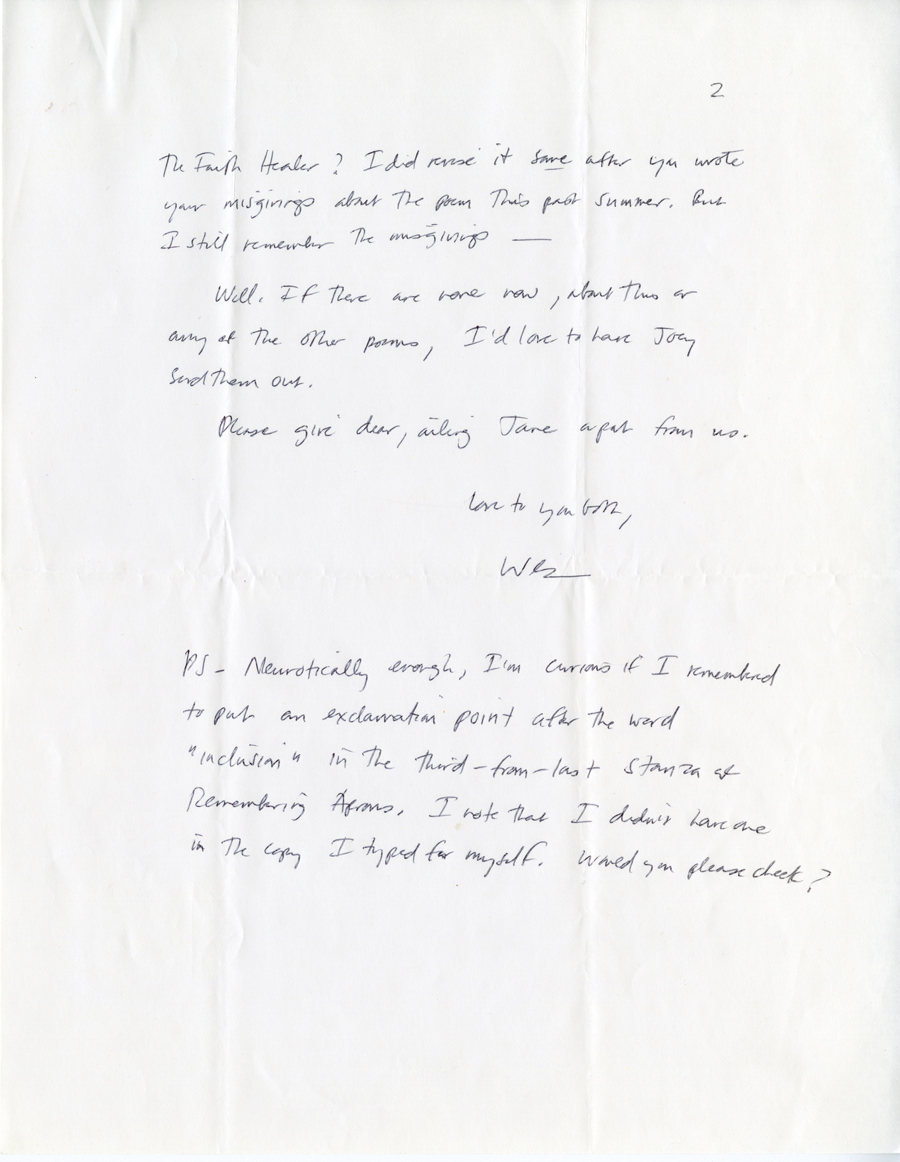 2
The Faith Healer? I did revise it some after you wrote
your misgivings about the poem this past summer. But
I still remember the misgivings —
Well. If there are none now, about this or
any of the other poems, I'd love to have Joey
send them out.
Please give dear, ailing Jane a pat from us.
Love to you both,
Wes
PS – Neurotically enough, I'm curious if I remembered
to put an exclamation point after the word
"inclusion" in the third-from-last stanza of
Remembering Aprons. I note that I didn't have one
in the copy I typed for myself. Would you please check?